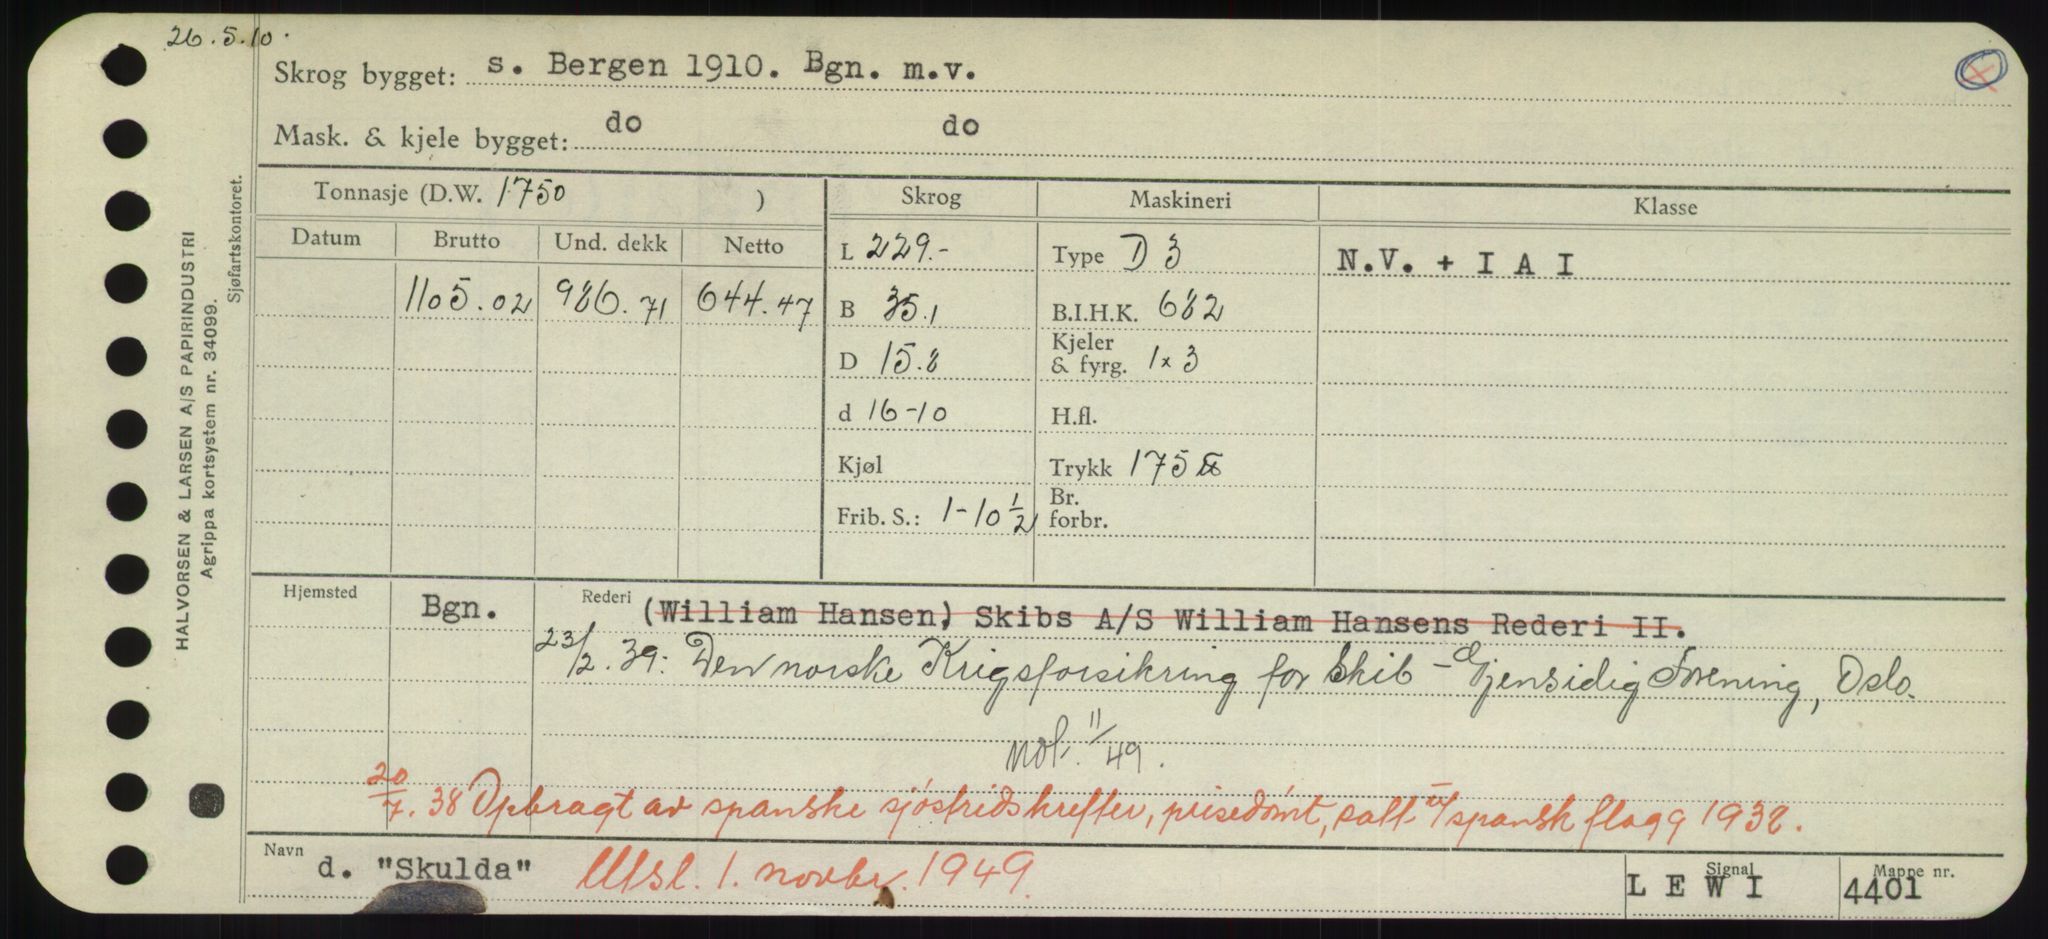 26.5.10.
Skrog bygget: s. Bergen 1910. Bgn. m.v.
Mask. & kjele bygget: do do
Tonnasje (D.W. 1750 ) Skrog Maskineri Klasse
Datum Brutto Und. dekk Netto
L 229.- Type D 3 N.V. + I A I
1105.02 986.71 644.47 B 35.1 B.I.H.K. 682
D 15.8 Kjeler & fyrg. 1x3
d 16-10 H.fl.
Kjøl Trykk 175 lb
Frib. S.: 1-10 1/2 Br. forbr.
Hjemsted Bgn. Rederi (William Hansen) Skibs A/S William Hansens Rederi II.
23/2.39: Den norske Krigsforsikring for Skib - Gjensidig Forening, Oslo.
not. 11/49.
20/7.38 Opbragt av spanske sjöstridskrefter, prisedömt, satt u/ spansk flagg 1938.
Navn d. "Skulda" Utsl. 1. novbr. 1949. Signal L E W I Mappe nr. 4401
HALVORSEN & LARSEN A/S PAPIRINDUSTRI
Agrippa kortsystem nr. 34099.
Sjøfartskontoret.